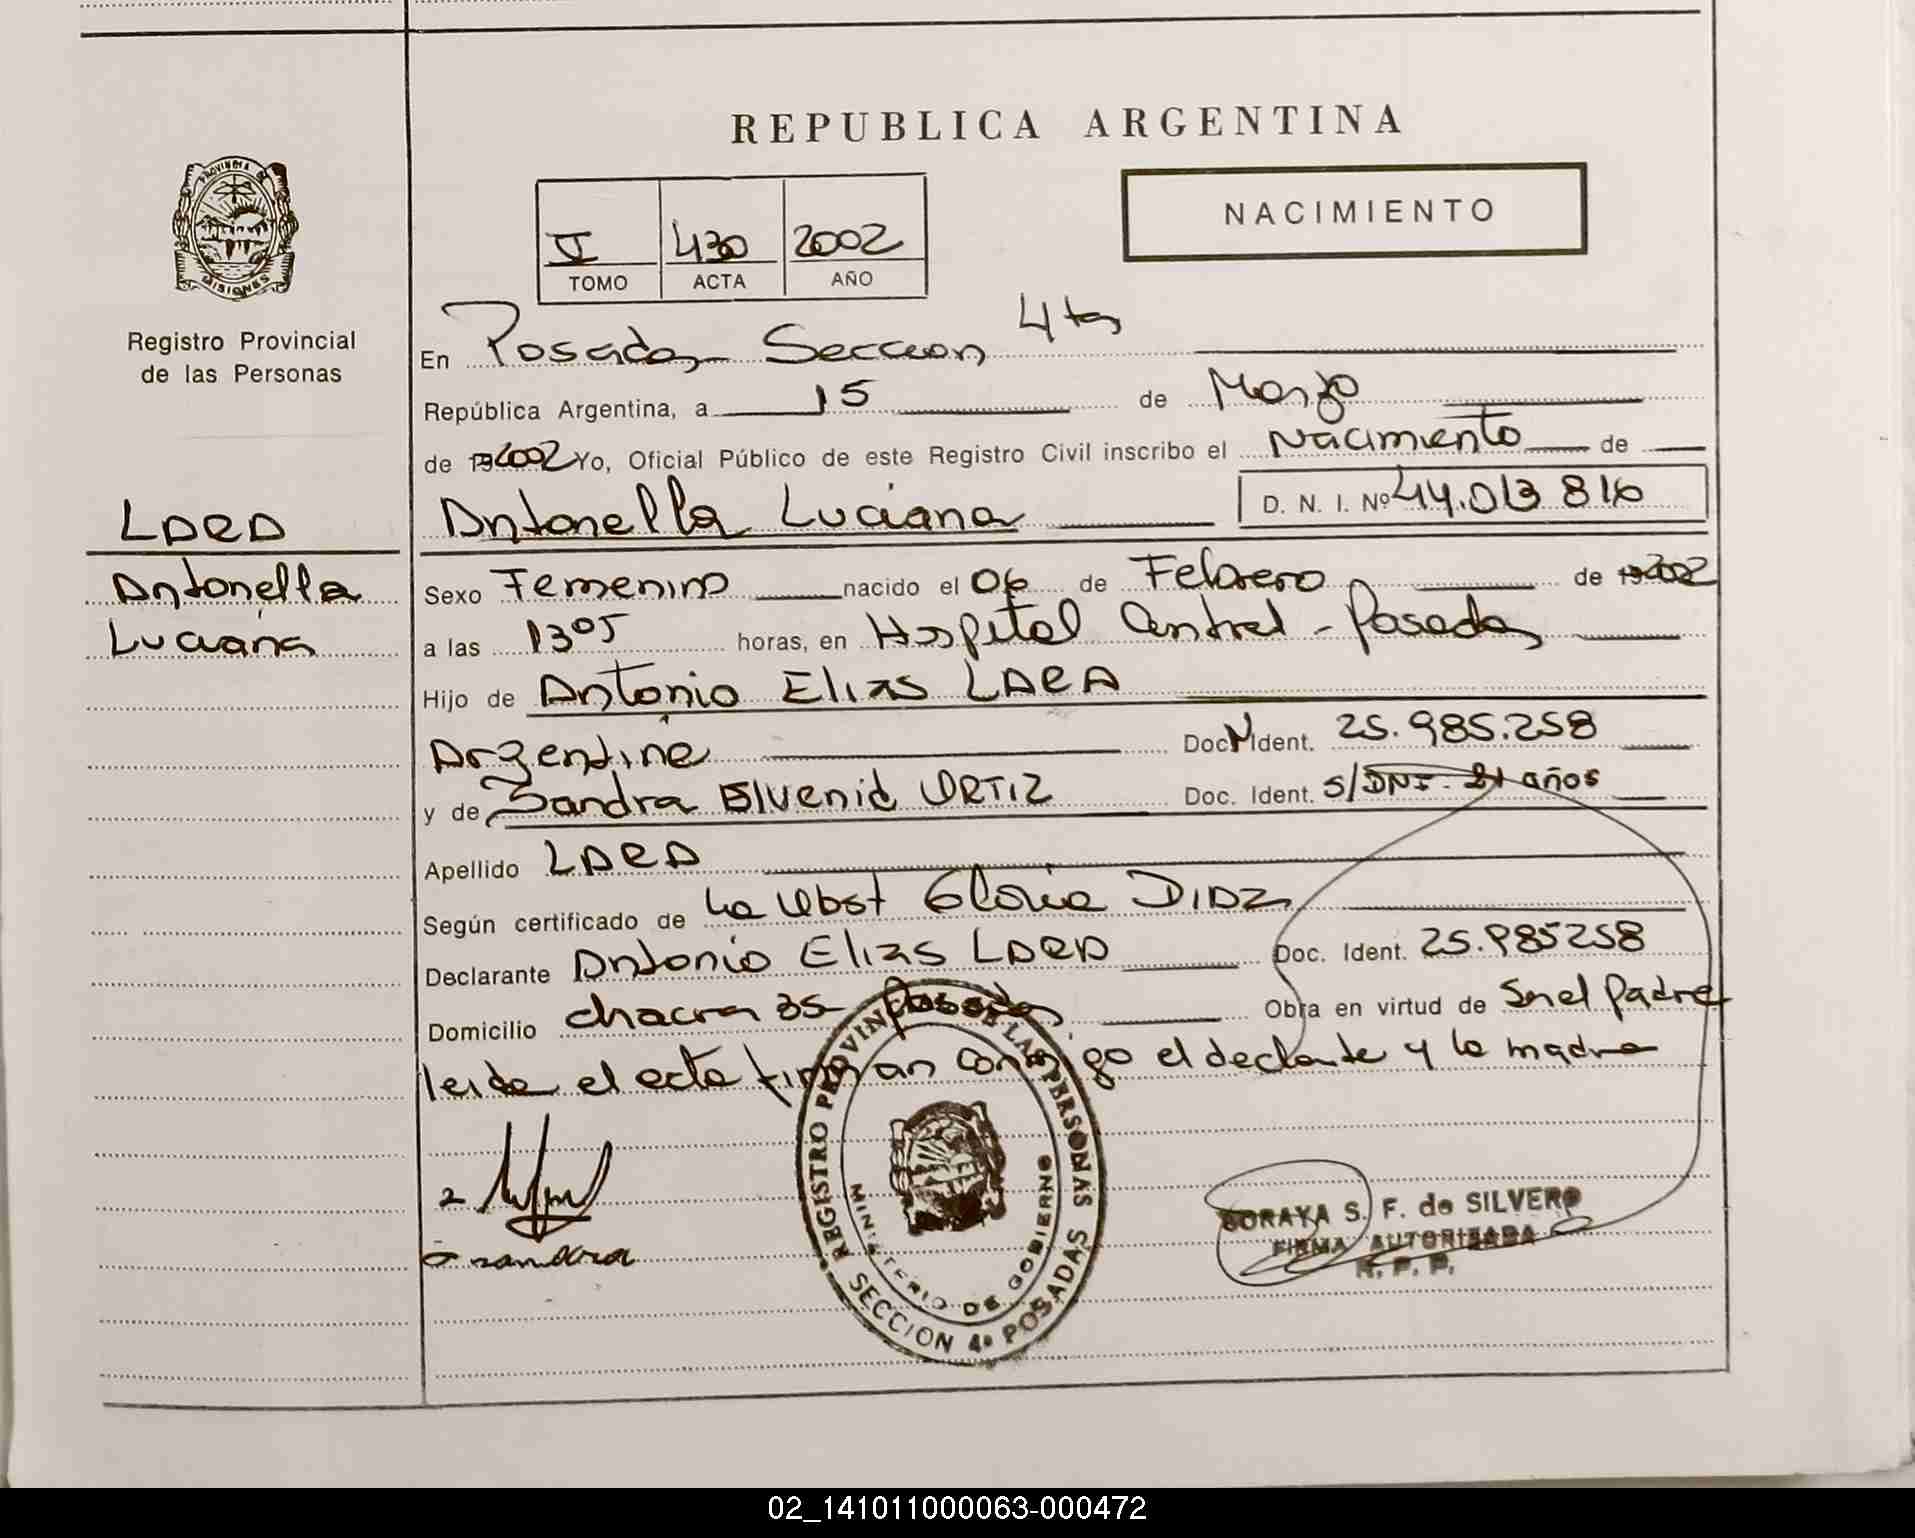 REPUBLICA ARGENTINA
PROVINCIA DE
MISIONES
Registro Provincial
de las Personas
V 430 2002
TOMO ACTA AÑO
NACIMIENTO
En Posadas Seccion 4ta
República Argentina, a 15 de Marzo
de 2002 Yo, Oficial Público de este Registro Civil inscribo el Nacimiento de
LARA
Antonella
Luciana
Antonella Luciana D. N. I. Nº 44.013.816
Sexo Femenino nacido el 06 de Febrero de 2002
a las 13 05 horas, en Hospital Central - Posadas
Hijo de Antonio Elias LARA
Argentina Doc. Ident. 25.985.258
y de Sandra ORTIZ Doc. Ident. S/DNI - 21 años
Apellido LARA
Según certificado de La Obst Gloria DIAZ
Declarante Antonio Elias LARA Doc. Ident. 25.985258
Domicilio chacra 35 - Posadas Obra en virtud de Ser el Padre
leida el acta firman conmigo el declarante y la madre
sandra
REGISTRO PROVINCIAL DE LAS PERSONAS
MINISTERIO DE GOBIERNO
SECCION 4ª POSADAS
SORAYA S. F. de SILVERO
FIRMA AUTORIZADA
R. P. P.
02_141011000063-000472